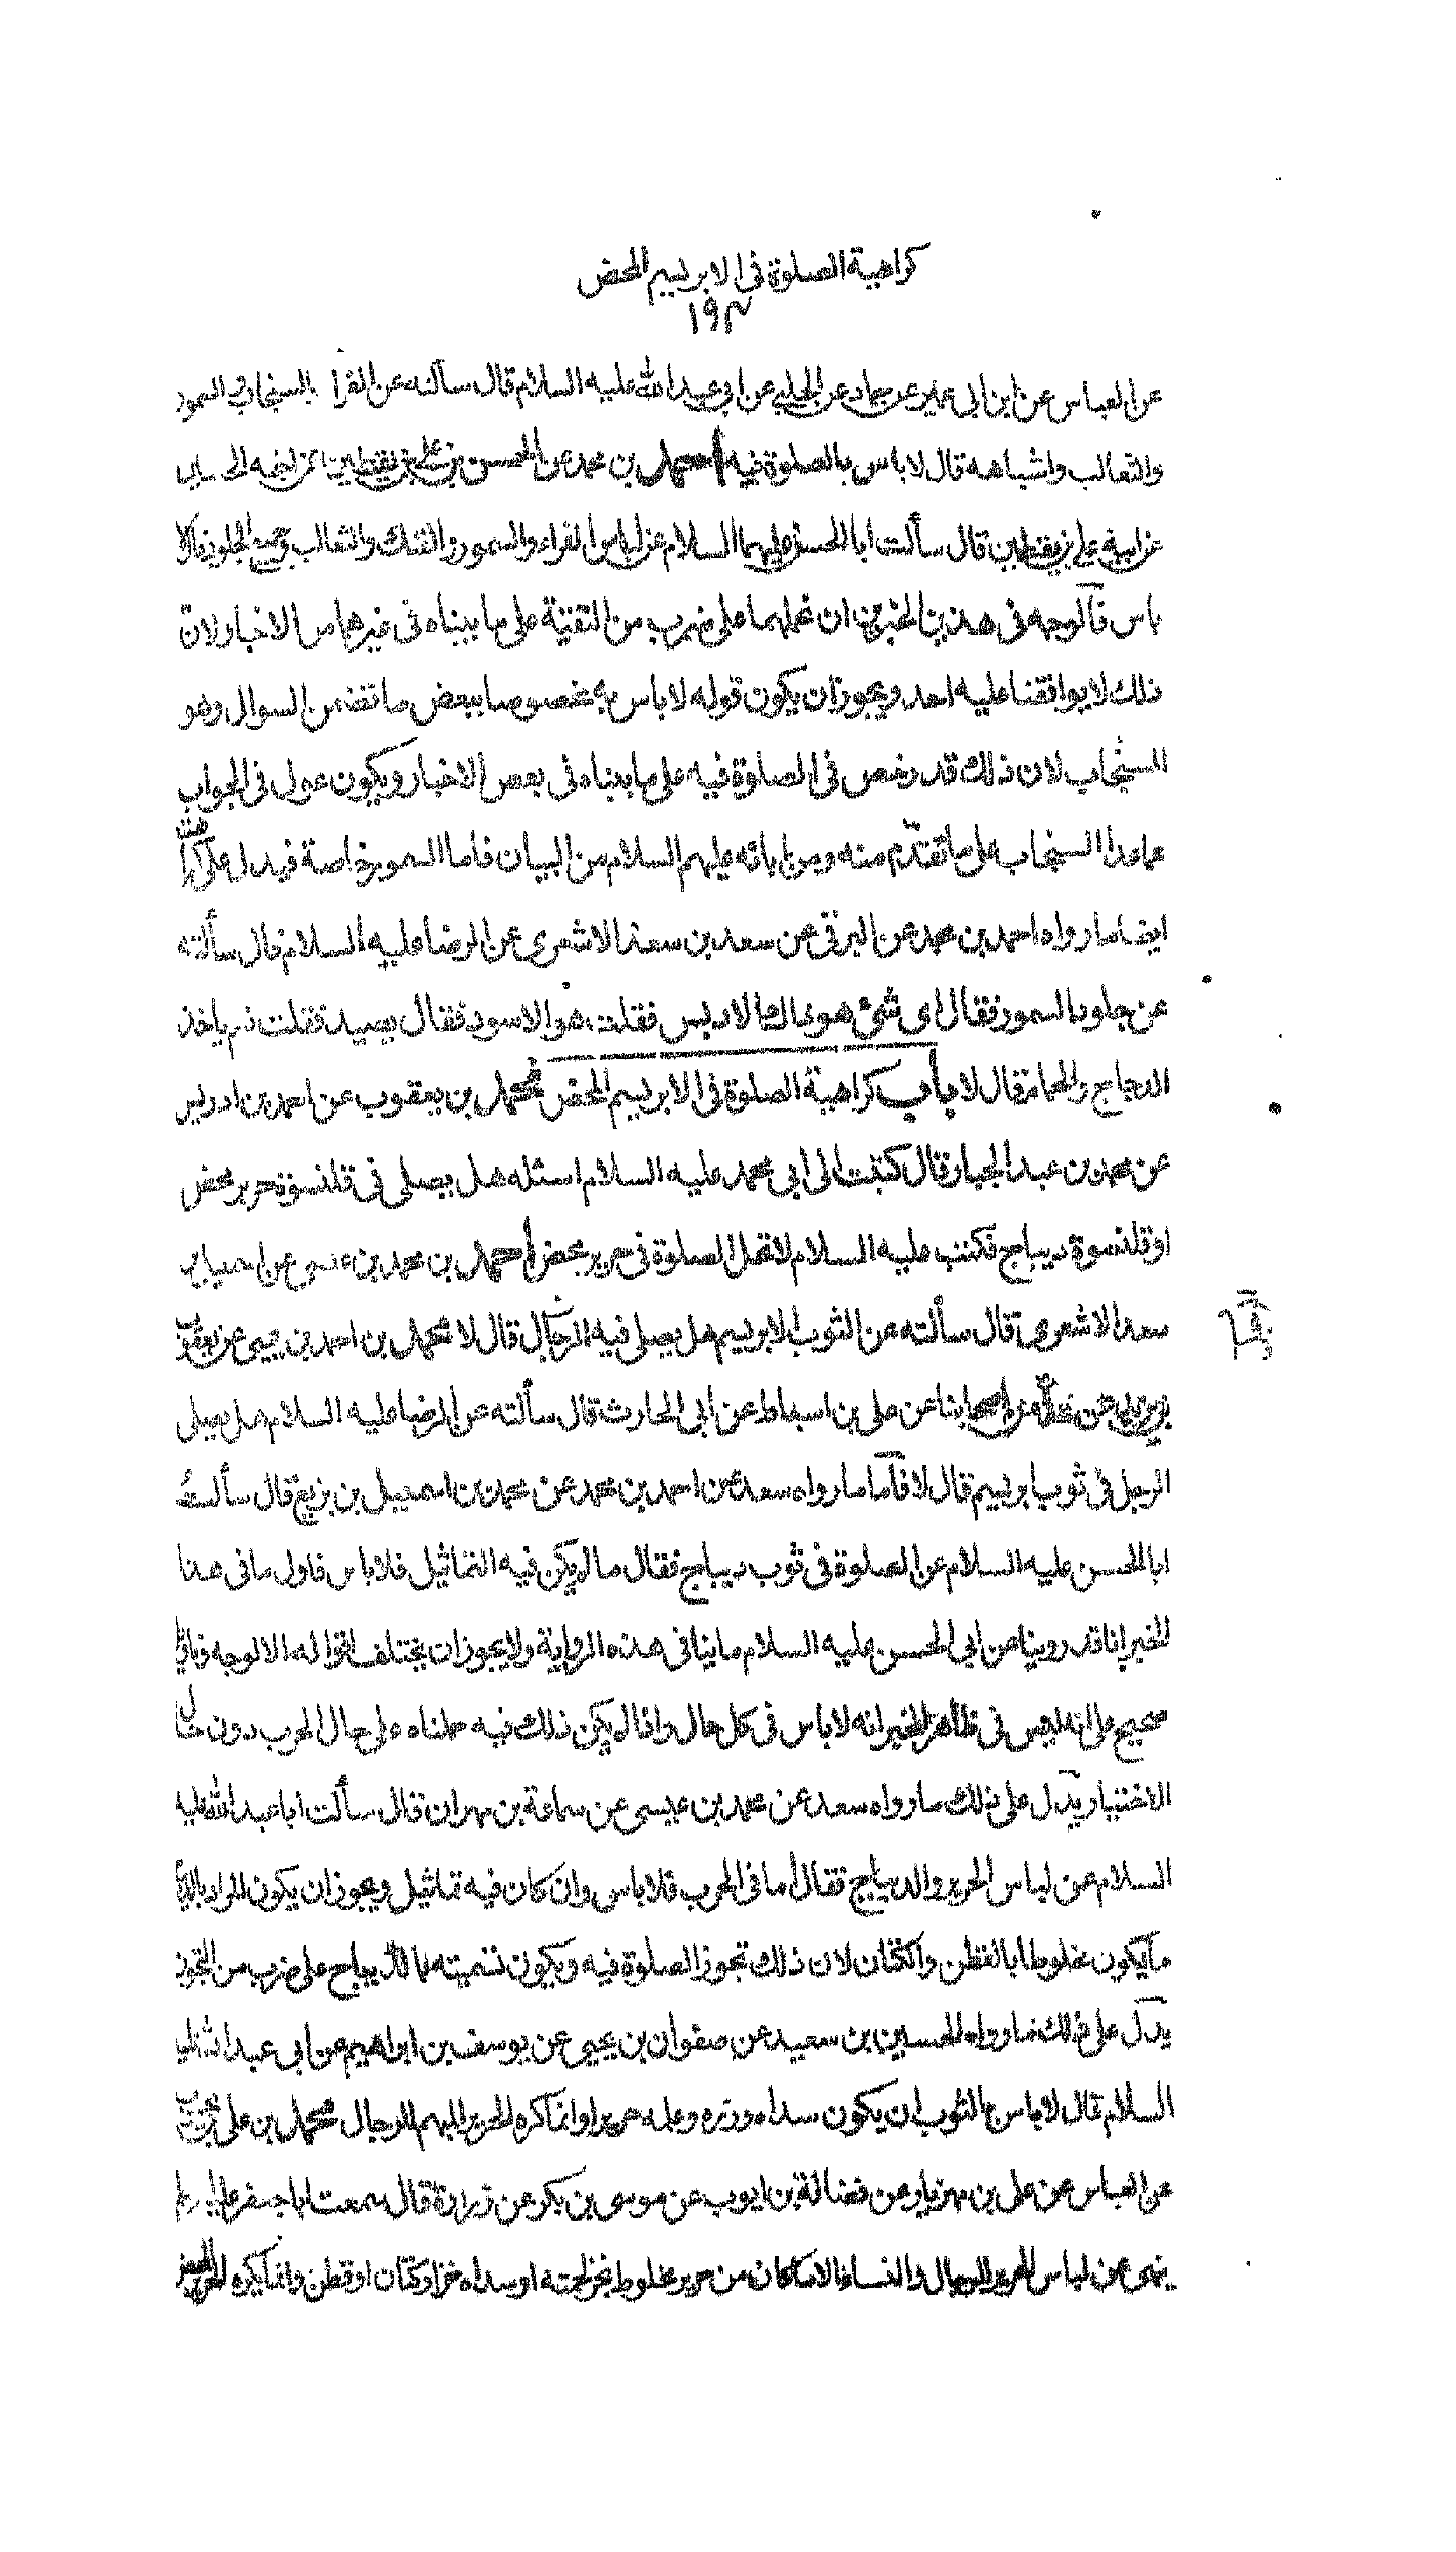 كراهية الصلوة فى الابريسم المحض
١٩٣
عن العباس عن ابن ابى عمير عن حماد عن الحلبى عن ابى عبد الله عليه السلام قال سألته عن الفرا السنجاب السمور
والثعالب واشباهه قال لاباس بالصلوة فيه احمد بن محمد عن الحسن بن على بن يقطين عن اخيه الحسين
عن ابيه على بن يقطين قال سألت ابا الحسن عليهما السلام عن لباس الفراء والسمور والفنك والثعالب وجميع الجلود قال لا
باس فالوجه فى هذين الخبرين ان نحملهما على ضرب من التقية على ما بيناه فى غيرهما من الاخبار لان
ذلك لا يوافقنا عليه احد ويجوز ان يكون قوله لا باس به مخصوصا ببعض ما تضمن السوال وهو
السنجاب لان ذلك قد رخص فى الصلوة فيه على ما بيناه فى بعض الاخبار ويكون عول فى الجواب
عما عدا السنجاب على ما تقدم منه ومن ابائه عليهم السلام من البيان فاما السمور خاصة فيدل على كراهته
ايضا ما رواه احمد بن محمد عن البرقى عن سعد بن سعد الاشعرى عن الرضا عليه السلام قال سألته
عن جلود السمور فقال اى شئ هو ذاك الادبس فقلت هو الاسود فقال يصيد فقلت نعم ياخذ
الدجاج والحمام قال لا باب كراهية الصلوة فى الابريسم المحض محمد بن يعقوب عن احمد بن ادريس
عن محمد بن عبد الجبار قال كتبت الى ابى محمد عليه السلام اسئله هل يصلى فى قلنسوة حرير محض
او قلنسوة ديباج فكتب عليه السلام لا تحل الصلوة فى حرير محض احمد بن محمد بن عيسى عن اسمعيل بن
سعد الاشعرى قال سألته عن الثوب الابريسم هل يصلى فيه الرجال قال لا محمد بن احمد بن يحيى عن يعقوب
بن يزيد عن عدة من اصحابنا عن على بن اسباط عن ابى الحارث قال سألته عن الرضا عليه السلام هل يصلى
الرجل فى ثوب ابريسم قال لا فأما ما رواه سعد عن احمد بن محمد عن محمد بن اسمعيل بن بزيع قال سألت
ابا الحسن عليه السلام عن الصلوة فى ثوب ديباج فقال ما لم يكن فيه التماثيل فلا باس فاول ما فى هذا
الخبر انا قد روينا عن ابى الحسن عليه السلام ما ينافى هذه الرواية ولا يجوز ان يختلف اقواله الا لوجه
صحيح على انه ليس فى ظاهر الخبر انه لا باس فى كل حال واذا لم يكن ذلك فيه حملناه على حال الحرب دون حال
الاختيار يدل على ذلك ما رواه سعد عن محمد بن عيسى عن سماعة بن مهران قال سألت ابا عبد الله عليه
السلام عن لباس الحرير والديباج فقال اما فى الحرب فلا باس وان كان فيه تماثيل ويجوز ان يكون المراد بالديباج
ما يكون مخلوطا بالقطن والكتان لان ذلك تجوز الصلوة فيه ويكون تسميته بالديباج على ضرب من التجوز
يدل على ذلك ما رواه الحسين بن سعيد عن صفوان بن يحيى عن يوسف بن ابراهيم عن ابى عبد الله عليه
السلام قال لا باس بالثوب ان يكون سداه وزره وعلمه حريرا وانما كره الحرير المبهم للرجال محمد بن على بن محبوب
عن العباس عن على بن مهزيار عن فضالة بن ايوب عن موسى بن بكر عن زرارة قال سمعت ابا جعفر عليه السلام
ينهى عن لباس الحرير للرجال والنساء الا ما كان من حرير مخلوط بخز لحمته او سداه خز او كتان او قطن وانما يكره الحرير المحض